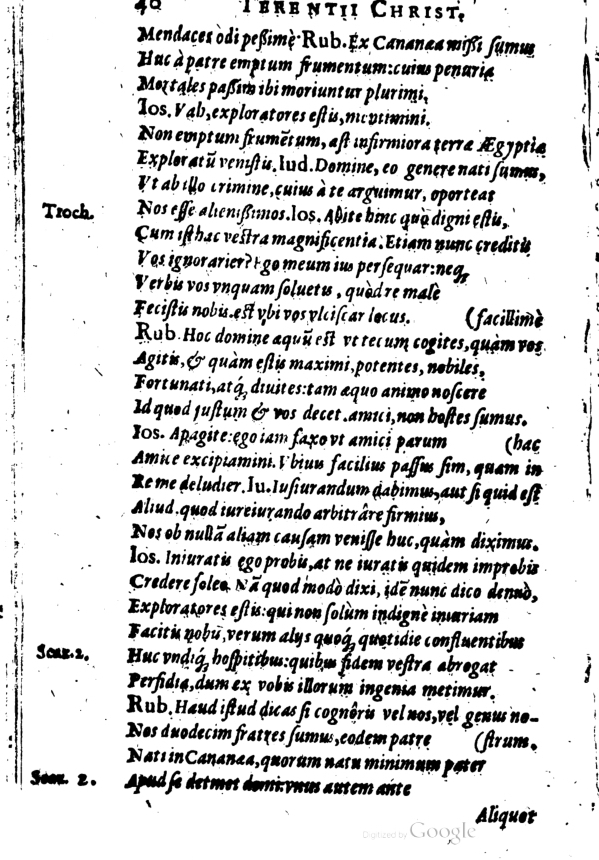 40 TERENTII CHRIST.
Mendaces òdi peßimè Rub. Ex Cananæa missi sumus
Huc à patre emptum frumentum: cuius penuria
Mortales passim ibi moriuntur plurimi.
Ios. Vah, exploratores estis, mentimini.
Non emptum frumẽtum, ast infirmiora terræ Ægyptiæ
Exploratũ venistis. Iud. Domine, eo genere nati sumus,
Vt ab illo crimine, cuius à te arguimur, oporteat
Troch. Nos esse alienißimos. Ios. Abite hinc quà digni estis,
Cum isthac vestra magnificentia. Etiam nunc creditis
Vos ignorarier? Ego meum ius persequar: neq;
Verbis vos vnquam soluetis, quòd re malè
Fecistis nobis. est vbi vos vlciscar locus. (facillimè
Rub. Hoc domine æquũ est vt tecum cogites, quàm vos
Agitis, & quàm estis maximi, potentes, nobiles,
Fortunati, atq; diuites: tam æquo animo noscere
Id quod justum & vos decet. amici, non hostes sumus.
Ios. Apagite: ego iam faxo vt amici parum (hac
Amicè excipiamini. Vbiuis facilius passus sim, quam in
Re me deludier. Iu. Iusiurandum dabimus, aut si quid est
Aliud. quod iureiurando arbitrâre firmius,
Nos ob nullã aliam causam venisse huc, quàm diximus.
Ios. Iniuratis ego probis, at ne iuratis quidem improbis
Credere soleo. Nã quod modò dixi, idẽ nunc dico denuò,
Exploratores estis: qui non solum indignè iniuriam
Facitis nobis, verum alijs quoq; quotidie confluentibus
Scaz. 2. Huc vndiq; hospitibus: quibus fidem vestra abrogat
Perfidia, dum ex vobis illorum ingenia metimur.
Rub. Haud istud dicas si cognôris vel nos, vel genus no-
Nos duodecim fratres sumus, eodem patre (strum.
Nati in Cananæa, quorum natu minimum pater
Scen. 2. Apud se detinet domi. vnus autem ante
Aliquot
Digitized by Google